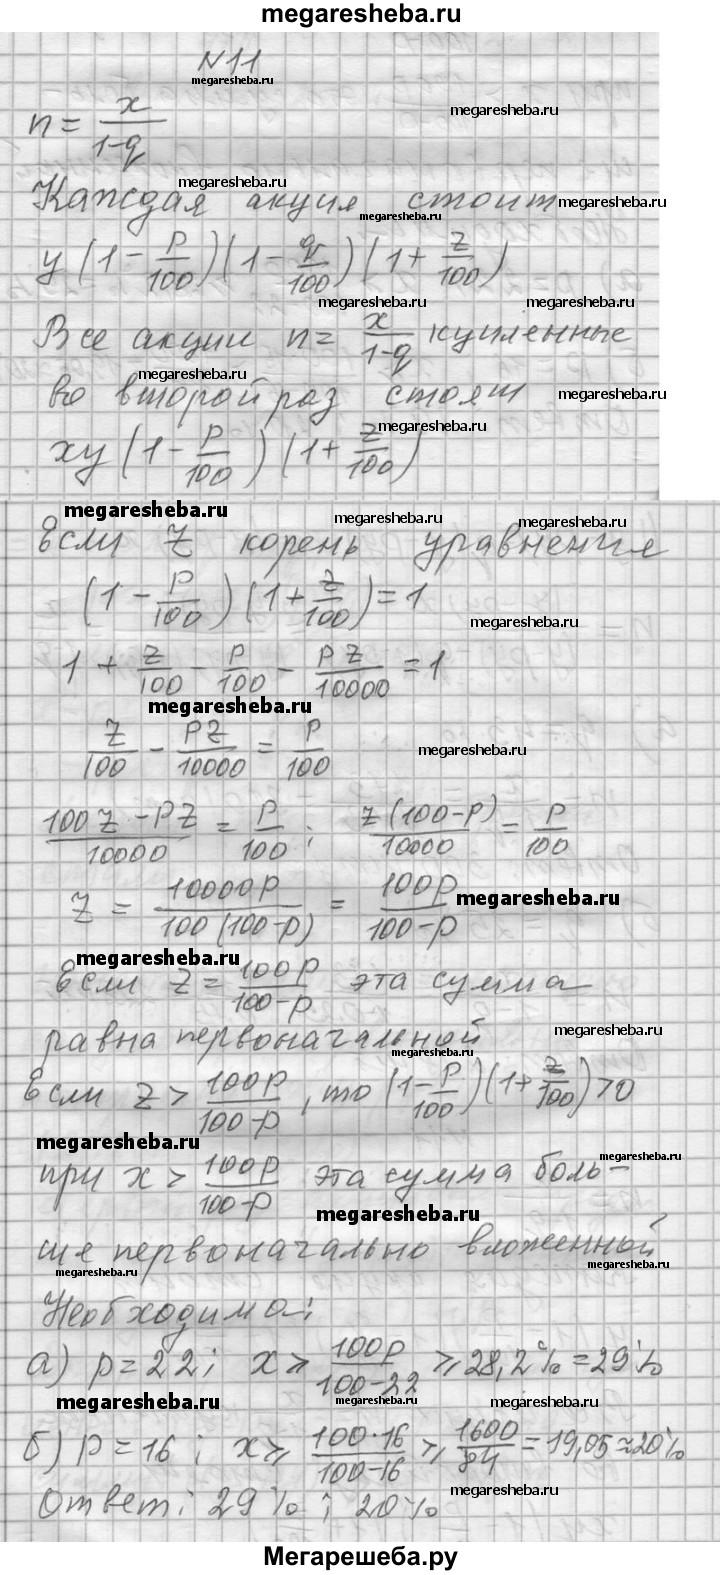 megaresheba.ru
N11
megaresheba.ru
n = x/(1-q)
megaresheba.ru
megaresheba.ru
Каждая акция стоит
megaresheba.ru
megaresheba.ru
y(1 - p/100)(1 - q/100)(1 + z/100)
megaresheba.ru
megaresheba.ru
Все акции n = x/(1-q) купленные
megaresheba.ru
во второй раз стоят
megaresheba.ru
megaresheba.ru
xy(1 - p/100)(1 + z/100)
megaresheba.ru
megaresheba.ru
megaresheba.ru
Если z корень уравнения
(1 - p/100)(1 + z/100) = 1
megaresheba.ru
1 + z/100 - p/100 - pz/10000 = 1
megaresheba.ru
z/100 - pz/10000 = p/100
megaresheba.ru
(100z - pz)/10000 = p/100 ; z(100-p)/10000 = p/100
z = 10000p/(100(100-p)) = 100p/(100-p)
megaresheba.ru
megaresheba.ru
Если z = 100p/(100-p) эта сумма
равна первоначальной
megaresheba.ru
megaresheba.ru
Если z > 100p/(100-p), то (1 - p/100)(1 + z/100) > 0
megaresheba.ru
megaresheba.ru
при x > 100p/(100-p) эта сумма боль-
megaresheba.ru
ше первоначально вложенной
megaresheba.ru
megaresheba.ru
Необходимо:
а) p = 22; x ⩾ 100p/(100-22) ⩾ 28,2% = 29%
megaresheba.ru
megaresheba.ru
megaresheba.ru
б) p = 16; x ⩾ 100·16/(100-16) ⩾ 1600/84 = 19,05 ≈ 20%
megaresheba.ru
Ответ: 29%; 20%
megaresheba.ru
Мегарешеба.ру